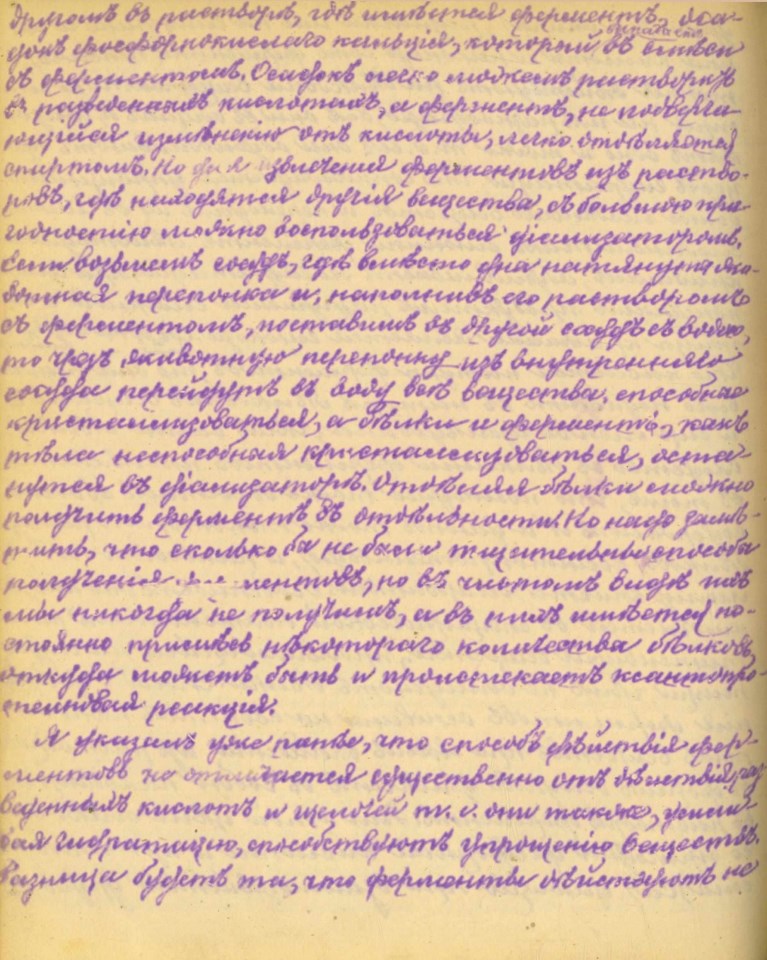 другомъ въ растворѣ, гдѣ имѣется ферментъ, оса-
докъ фосфорнокислаго кальція, который въ смѣси
выпадаетъ
съ ферментомъ. Осадокъ легко можемъ растворить
въ разведенныхъ кислотахъ, а ферментъ, не подверга-
ющійся измѣненію отъ кислоты, легко отдѣляется
спиртомъ. Но для извлеченія ферментовъ изъ раство-
ровъ, гдѣ находятся другія вещества, съ большою при-
годностію можно воспользоваться діализаторомъ.
Если возьмемъ сосудъ, гдѣ вмѣсто дна натянута жи-
вотная перепонка и, наполнивъ его растворомъ
съ ферментомъ, поставимъ въ другой сосудъ съ водою,
то чрезъ животную перепонку изъ внутренняго
сосуда перейдутъ въ воду всѣ вещества, способныя
кристаллизоваться, а бѣлки и ферментъ, какъ
тѣла неспособныя кристаллизоваться, оста-
нутся въ діализаторѣ. Отдѣляя бѣлки можно
получить ферментъ въ отдѣльности. Но надо замѣ-
тить, что сколько бы не были тщательны способы
полученія ментовъ, но въ чистомъ видѣ ихъ
мы никогда не получимъ, а въ нихъ имѣется по-
стоянно примѣсь нѣкотораго количества бѣлковъ,
откуда можетъ быть и происткаетъ ксантопро-
теиновая реакція.
Я указалъ уже ранѣе, что способъ дѣйствія фер-
ментовъ не отличается существенно отъ дѣйствія раз
веденныхъ кислотъ и щелочей т. е. они также, усили-
вая гидратацію, способствуютъ упрощенію веществъ.
Разница будетъ та, что ферменты дѣйствуютъ не